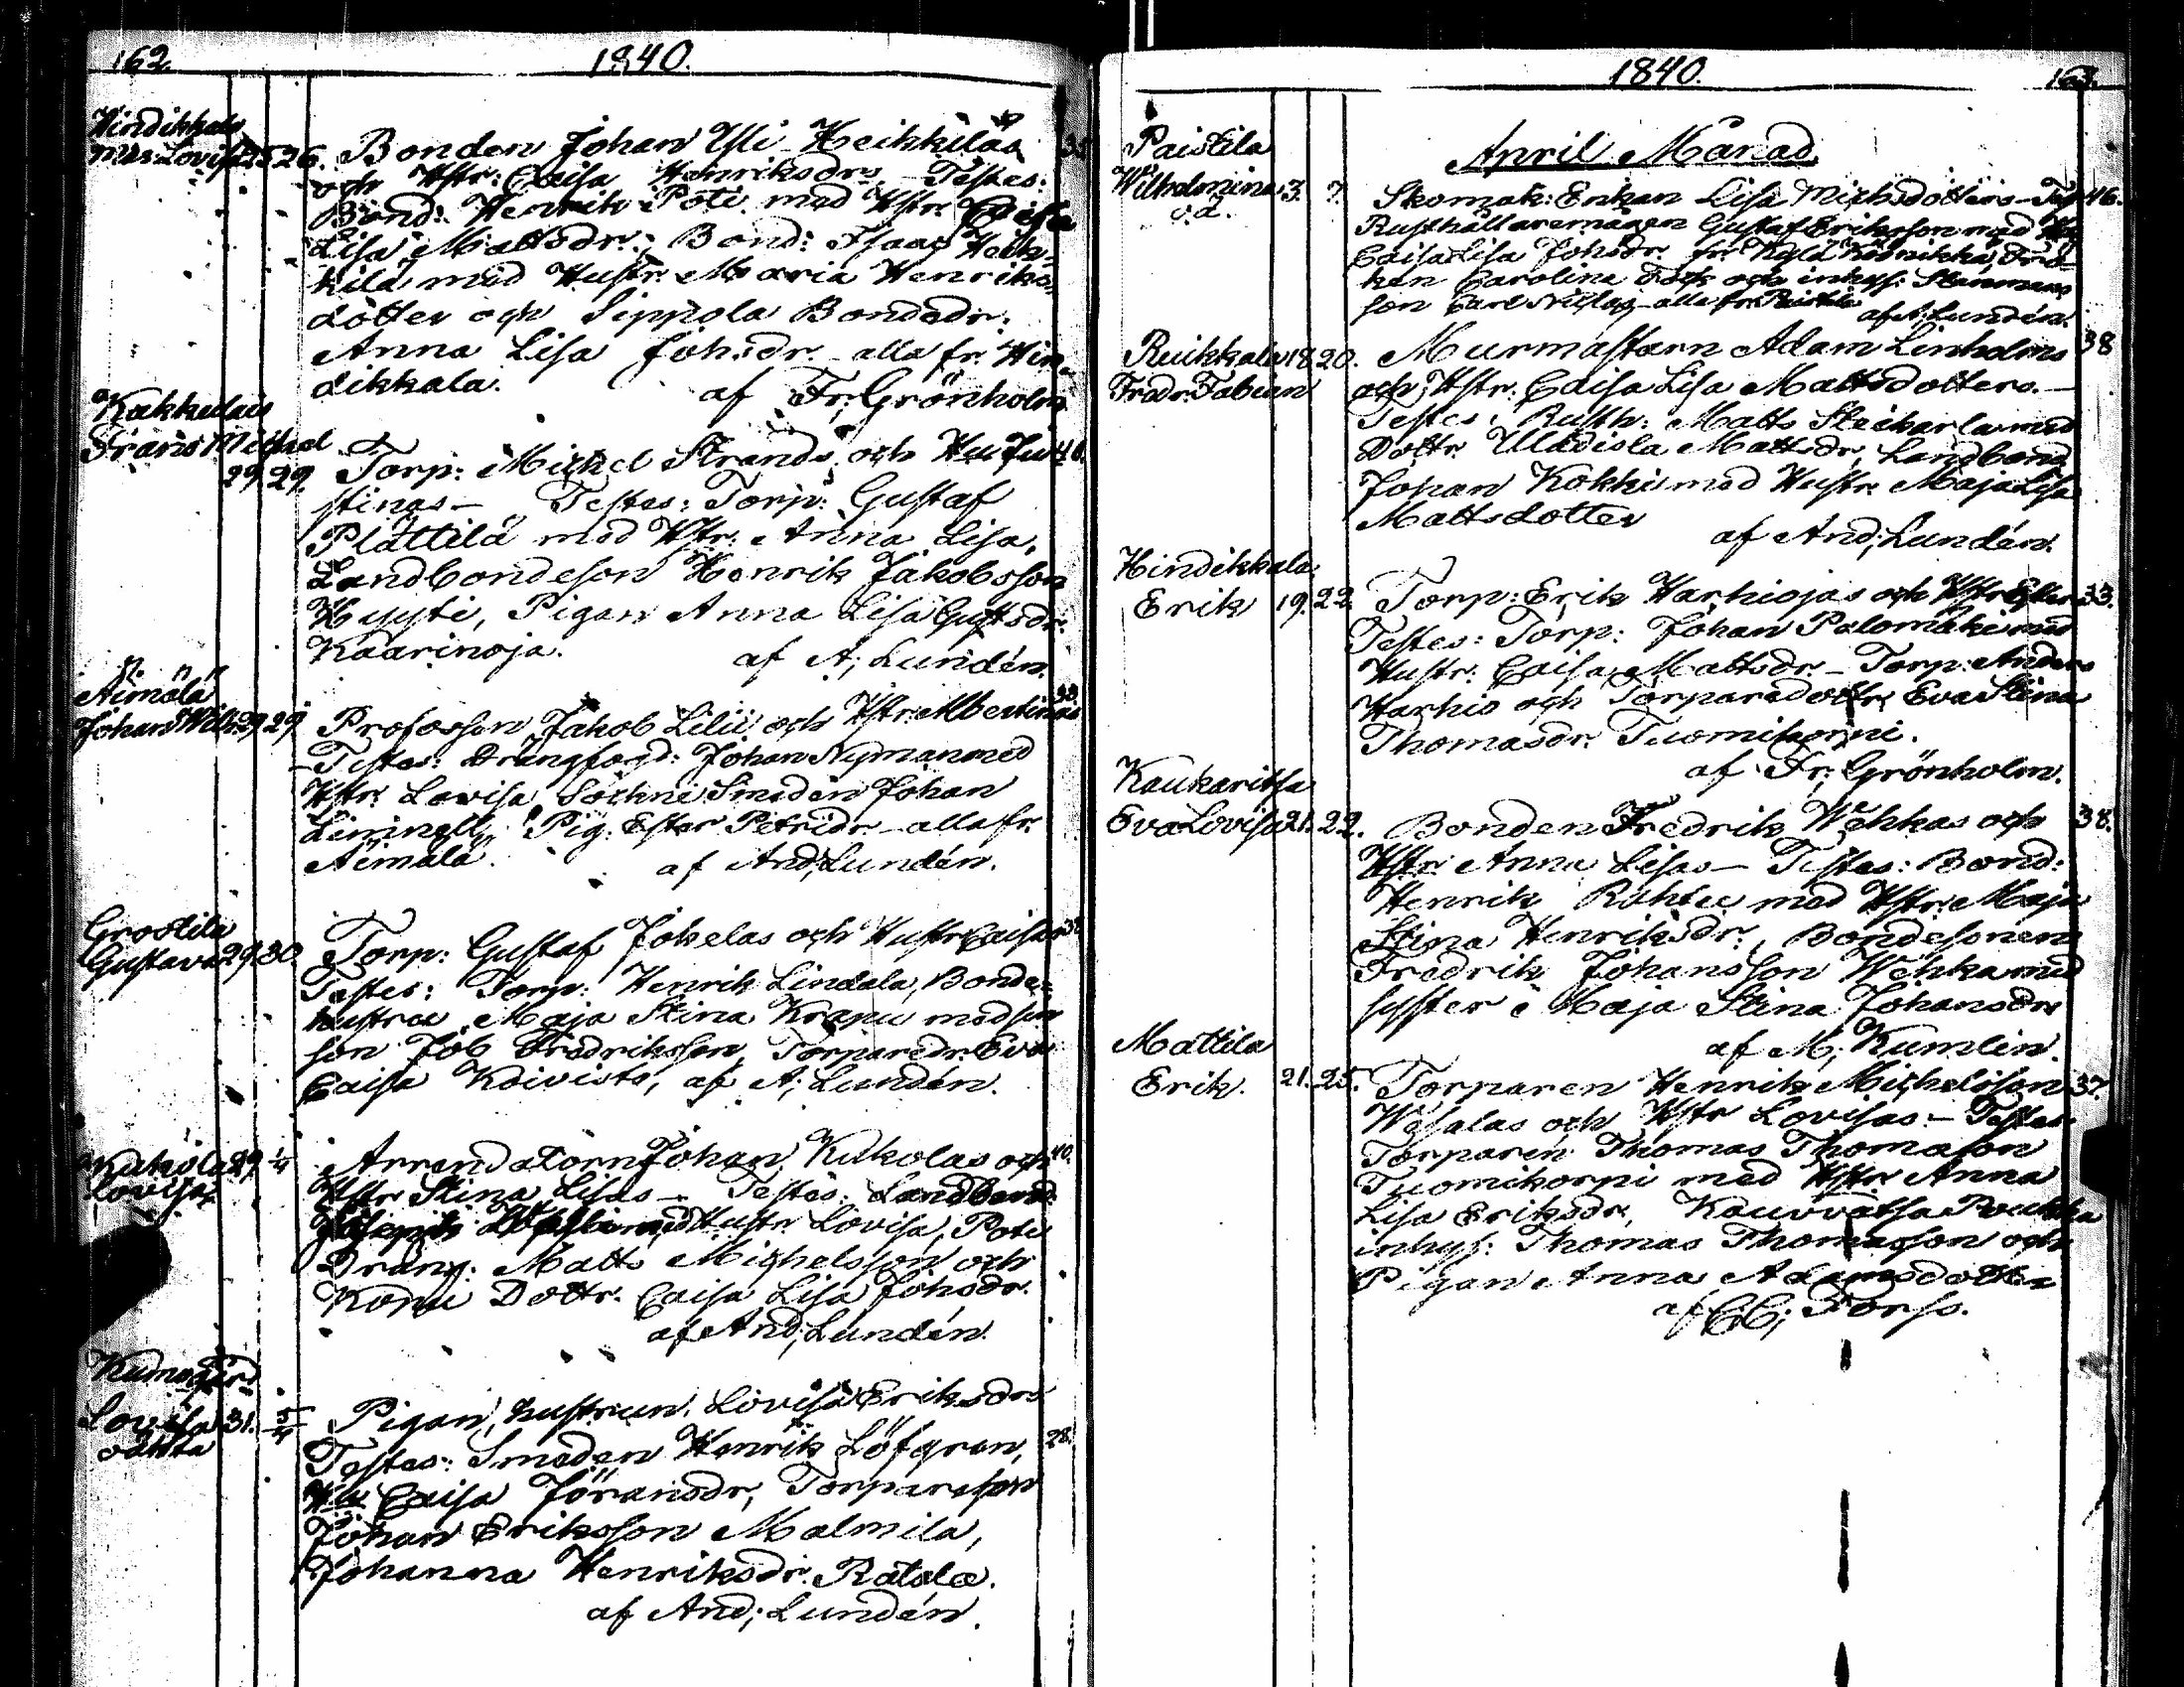 162.
1840.
Hindikkala
Mar. Lovisa 25 26. Bonden Johan Yli-Heikkiläs
och Hstr: Caisa Henriksdrs - Testes:
Bond: Henrik Poti med Hstr:
Lisa Mattsdr: Bond: Isaac Heik-
kilä med Hustr: Maria Henriks-
dotter och Sippola Bondedr:
Anna Lisa Johsdr: - alla fr: Hin-
dikkala.
af Fr: Grönholm
Frans Michel
29. 29. Torp: Michel Strands och Hu Ju
stinas - Testes: Torp: Gustaf
Plättilä med Hstr: Anna Lisa,
Landbondeson Henrik Jakobsson
Hyyti, Pigan Anna Lisa Gustsdr:
Kaarinoja.
af A; Lundén.
Äimälä
Johan Wilh: 29 29 Profossen Jakob Lilii och Hstr: Albertinas 33
Testes: Drängfogd: Johan Nyman med
Hstr: Lovisa Sockne Smeden Johan
Pig: Ester Petridr - alla fr:
Äimälä.
af And; Lundén.
Grootila
Gustava 29. 30. Torp: Gustaf Jokelas och Hustr Caisas 38
Testes: Torp: Henrik Lindala, Bonde-
hustru Maja Stina Krapu med sin
son Job Fredriksson, Torparedr: Eva
Caisa Koivisto, af A; Lundén.
Kukola 29. 1/4 Arrendatorn Johan Kukolas och 40.
Lovisa
Hstr Stina Lisas - Testes: Landbond:
med Hustr Lovisa, Poti
Dräng: Matts Michelsson och
Konu Dottr. Caisa Lisa Johsdr.
af And; Lundén.
Lovisa 31. 5/4 Pigan, hustrun, Lovisa Eriksdrs
oäkta
Testes: Smeden Henrik Löfgren, 28.
Caisa Göransdr, Torpareson
Johan Eriksson Malmila,
Johanna Henriksdr. Ratala.
af And; Lundén.
1840.
163.
April Månad
Paistila
Wilhelmina 3. 7. Skomak: Enkan Lisa Michsdotters - Tes 46.
o.ä.
Rusthållaremågen Gustaf Eriksson med
Caisa Lisa Johsdr. fr.
ken Carolina och inhys:
son Carl Niclas - alla fr. Paistila
af A; Lundén.
Ruikkala 18 20. Murmästarn Adam Linholms 38
Fredr: Fabian
och Hstr: Caisa Lisa Mattsdotters. -
Testes: Rusth: Matts Skickarla med
Dottr. Uladisla Mattsdr, Landbond
Johan Kokki med Hustr. Maja Lisa
Mattsdotter
af And; Lundén.
Hindikkala
Erik 19. 22. Torp: Erik Harhiojas och Hstr: 33.
Testes: Torp: Johan Palomäki med
Hustr: Caisa Mattsdr. - Torp: Anders
Harhio och Torparedottr Eva Stina
Thomasdr. Tuomikorpi.
af Fr; Grönholm.
Kaukaritsa
Eva Lovisa 21. 22. Bonden Fredrik Wehkas och 38.
Hstr: Anna Lisas - Testes: Bond:
Henrik Rohtu med Hstr: Maja
Stina Henriksdr., Bondesonen
Fredrik Johansson Wehka med
syster Maja Stina Johansdr
af M; Kumlin.
Mattila
Erik. 21. 25. Torparen Henrik Michelsson 37.
Wesalas och Hstr Lovisas - Testes
Torparen Thomas Thomasson
Tuomikorpi med Hstr Anna
Lisa Eriksdr,
inhys: Thomas Thomasson och
Pigan Anna Adamsdotter
af Forss.